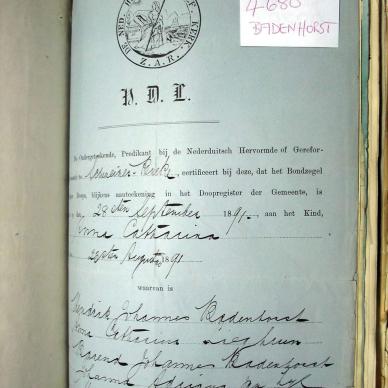 4680
BADENHORST
DE NED. KERK
Z.A.R.
V. D. L.
De Ondergeteekende, Predikant bij de Nederduitsch Hervormde of Gerefor-
Schweizer-Reneke, certificeert bij deze, dat het Bondzegel
Doop, blijkens aanteekening in het Doopregister der Gemeente, is
28sten September 1891. aan het Kind,
Anna Catharina
Augustus 1891
waarvan is
Hendrik Johannes Badenhorst
Anna Catharina
Barend Johannes Badenhorst
Johanna